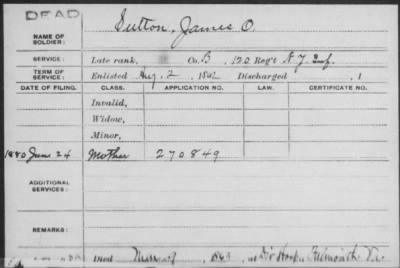 DEAD
NAME OF SOLDIER: Sutton, James O.
SERVICE: Late rank, Co. B, 120 Reg't N.Y. Inf.
TERM OF SERVICE: Enlisted Aug. 2, 1862 Discharged , 1
DATE OF FILING. CLASS. APPLICATION NO. CERTIFICATE NO.
Invalid,
Widow,
Minor,
1880 June 24 Mother 270849
ADDITIONAL SERVICES:
REMARKS:
Died at Div Hosp. Falmouth Va.